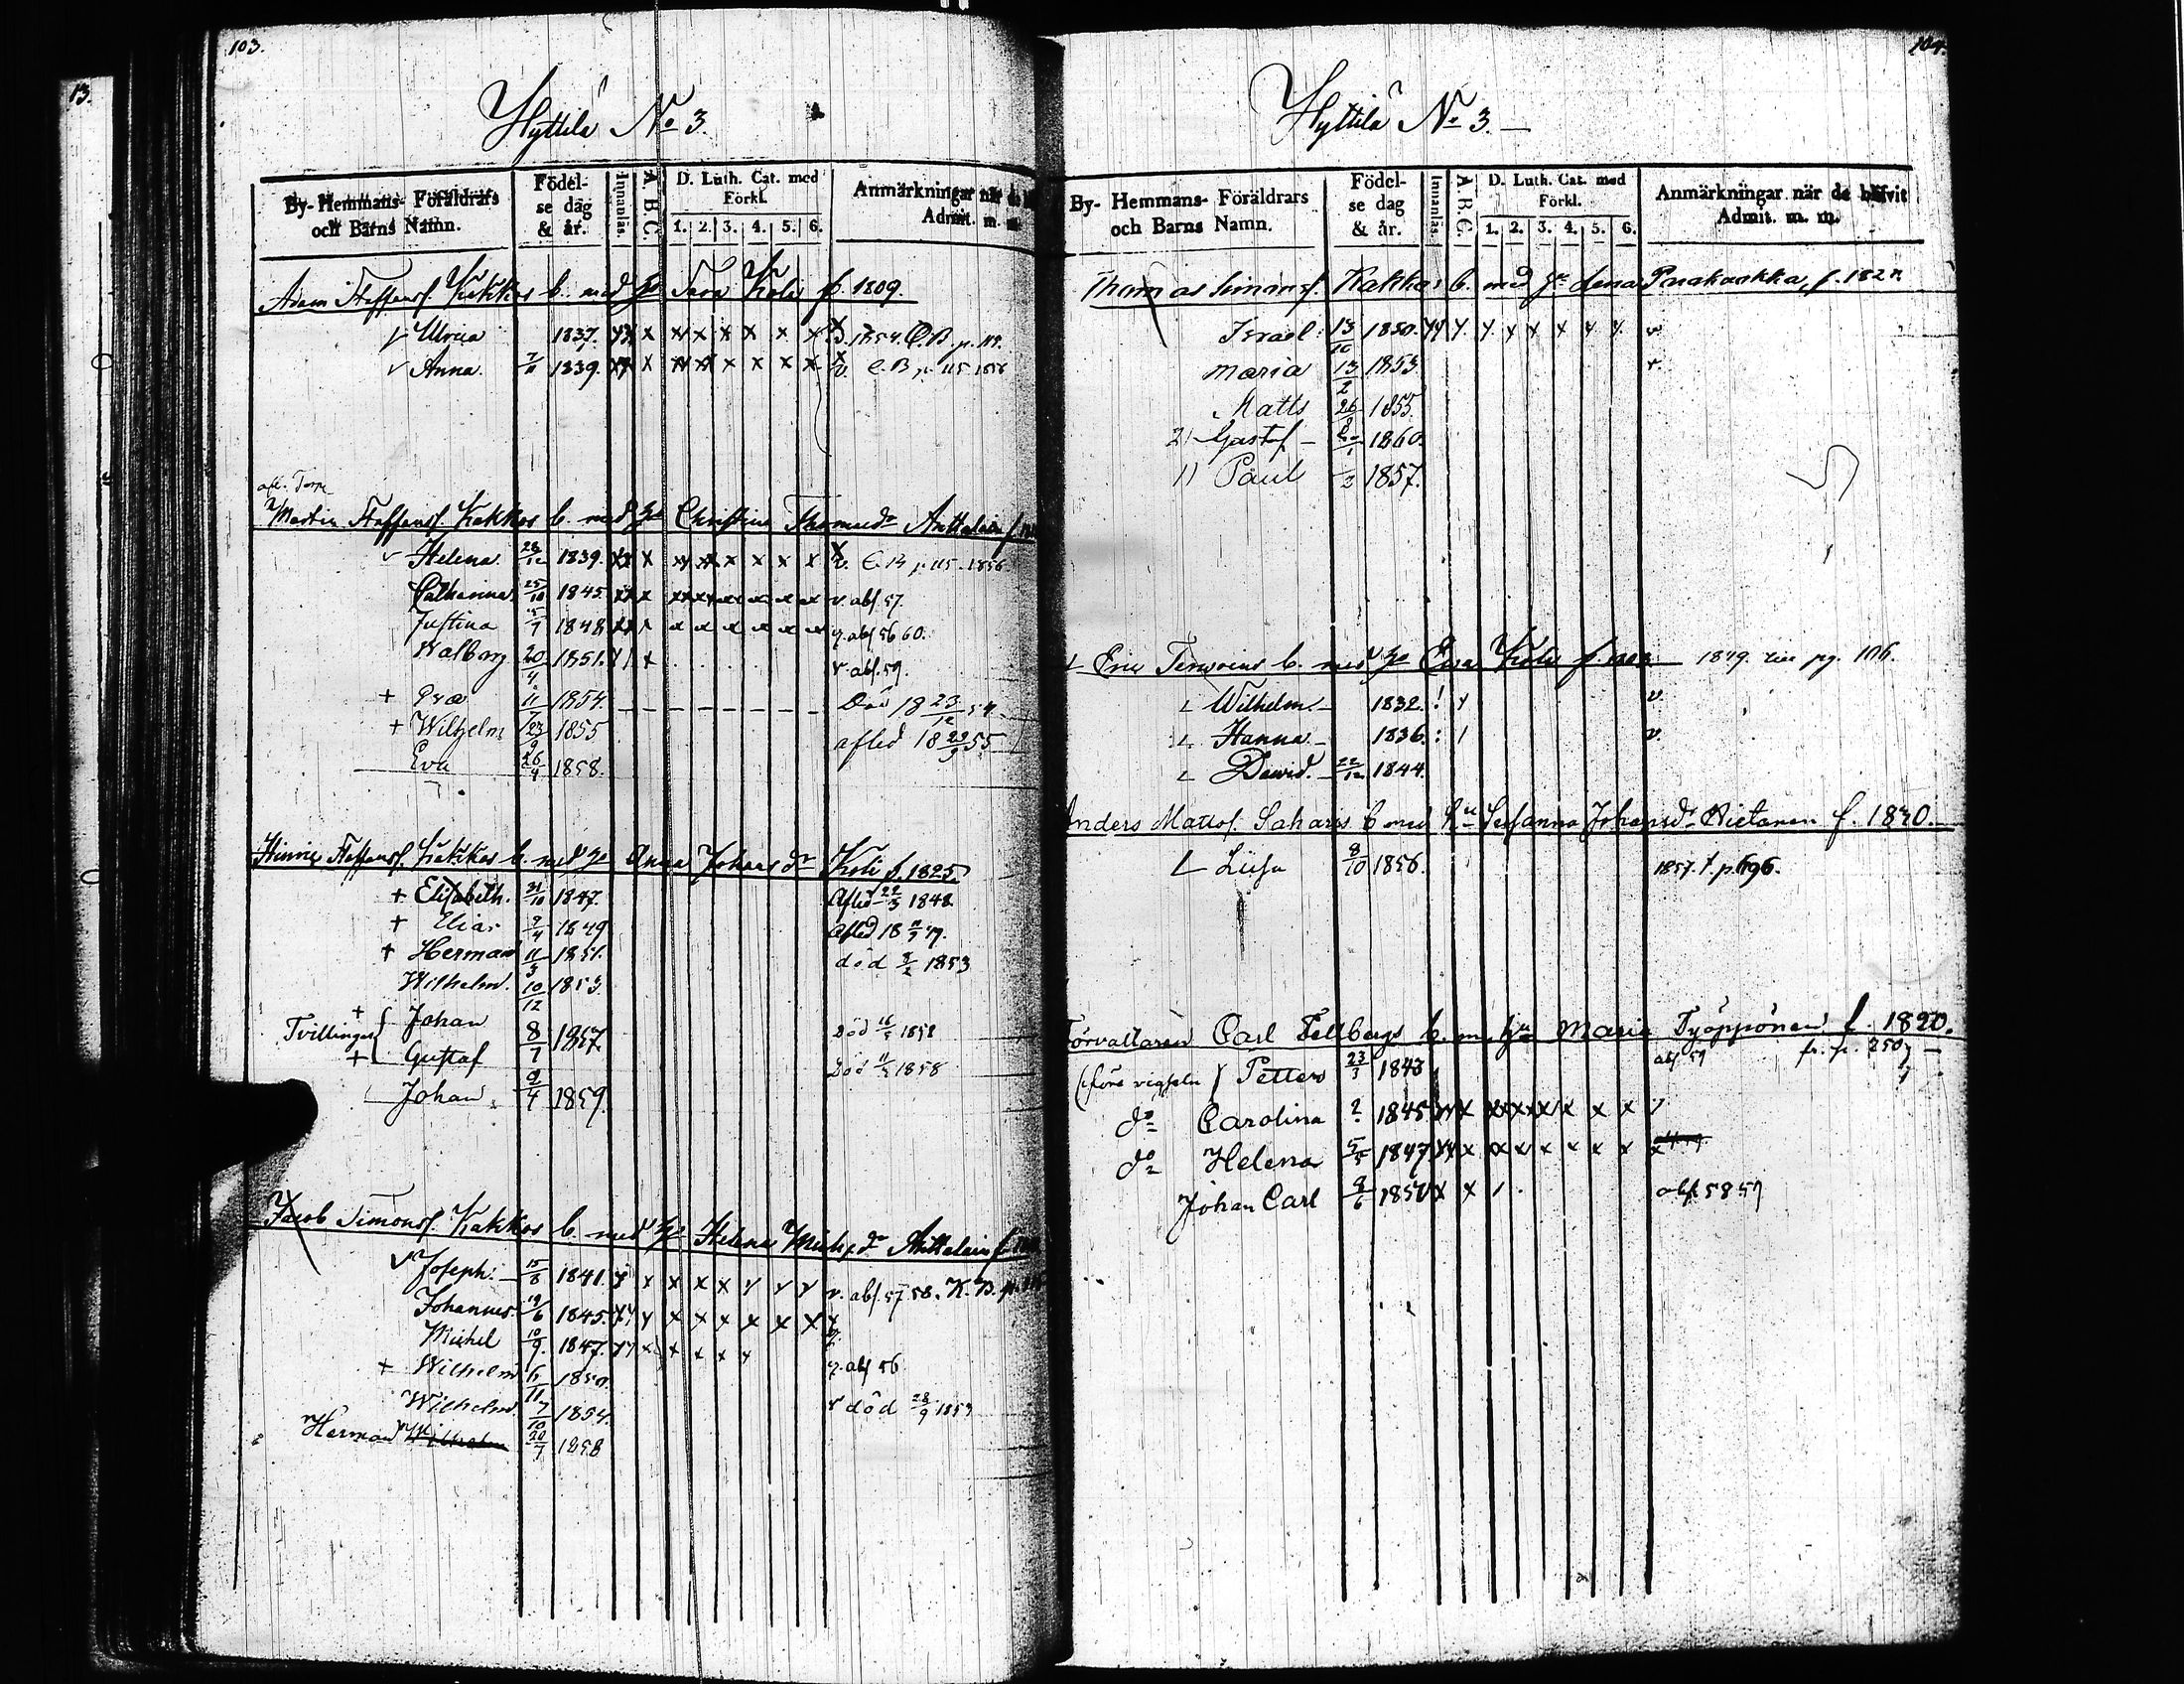 103.
Hyttilä No 3.
By- Hemmans- Föräldrars och Barns Namn.
Födelse dag & år.
Innanläs.
A. B. C.
D. Luth. Cat. med Förkl.
1. 2. 3. 4. 5. 6.
Anmärkningar när de
Admit. m. m.
Adam Staffansf. Kakkos b. med Hu Sara Koli f. 1809.
Ulrica 1837. x x x x x x x 1854. C.B. p. 114.
Anna. 7/11 1839. x x x x x x x v. C.B p. 115 1856
Martin Staffansf. Kakkos b. med Hu Christina Thomædr Anttalain f.
Helena. 28/12 1839. x x x x x x x v. C.B p. 115. 1856
Catharina. 25/10 1845. x x x x x x x v. abs. 57.
Justina 5/7 1848 x x x x x x x v. abs 56 60.
Walborg 20/4 1851. v abs. 59.
+ Eva 11/ 1854. Död 18 23/12 54.
+ Wilhelm 23/9 1855 afled 18 29/9 55
Eva 26/4 1858.
Hinric Staffansf. Kakkos b. med Hu Anna Johansdr Koli f. 1825.
+ Elisabeth. 31/10 1847. Afled 22/3 1848.
+ Elias 9/4 1849 Afled 18 49.
+ Herman 11/3 1851. död 8/2 1853
Wilhelm. 10/12 1853.
Tvillingar
+ Johan 8/7 1857. Död 1858
+ Gustaf Död 1858
Johan 2/4 1859.
Jacob Simonsf. Kakkos b. med Hu Helena Michsdr Anttalain f.
Joseph. 15/8 1841. x x x x x v. abs. 57 58. K.B. p.
Johannes. 19/6 1845. x x x x x x x
Michel 10/9 1847. x x x x v. abs 56
+ Wilhelm 6/11 1850. v död 28/9 1853
Wilhelm. 7/10 1854.
Herman Wilhelm 20/7 1858
104.
Hyttilä No 3.
By- Hemmans- Föräldrars och Barns Namn.
Födelse dag & år.
Innanläs.
A. B. C.
D. Luth. Cat. med Förkl.
1. 2. 3. 4. 5. 6.
Anmärkningar när de blifvit
Admit. m. m.
Thomas Simonsf. Kakkos b. med Hu Lena Puukarikka, f. 182
Israel. 13/10 1850. v
Maria 13/2 1853. v.
Matts 26/8 1855.
2) Gustaf 1860.
1) Paul 1857.
Eric Terwoin b. med Hu Eva Koli f. 1803. 1849. pg. 106.
Wilhelm. 1832. v.
Hanna. 1836. v.
Dawid. 22/12 1844.
Anders Mattsf. Saharis b med Hu Susanna Johansdr Nietanen f. 1830.
Liisa 8/10 1856. 1857. f. p. 696.
Förvaltaren Carl Fellbergs b. m. Hu Maria Työppönen f. 1820.
(före vigseln) Petter 23/3 1843 abs 59 fr. p. 250
do Carolina 2/ 1845 x x x x x x x
do Helena 5/5 1847 x x x x x x x
Johan Carl 9/6 1850 x x abs. 58 59
13.